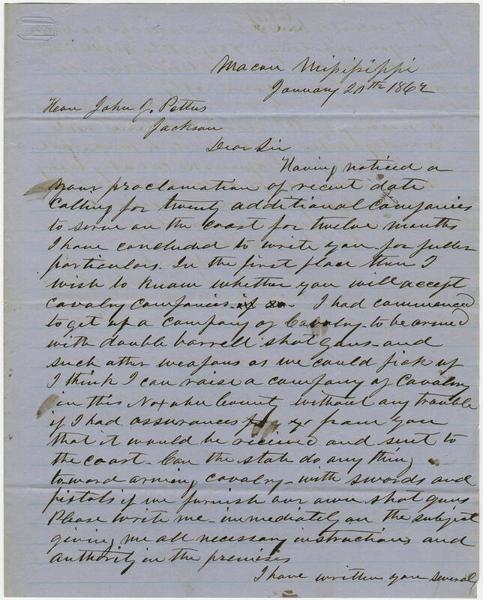 Macon Mississippi
January 20th 1862
Hon John J. Pettus
Jackson
Dear Sir
Having noticed a
your proclamation of recent date
calling for twenty additional companies
to serve on the coast for twelve months
I have concluded to write you for fuller
particulars. In the first place then I
wish to know whether you will accept
cavalry companies if so. I had commenced
to get up a company of Cavalry to be armed
with double barrell shot guns and
such other weapons as we could pick up
I think I can raise a company of Cavalry
in this Noxubee County without any trouble
if I had assurances from you
that it would be recieved and sent to
the coast. Can the state do any thing
toward arming cavalry with swords and
pistols if we furnish our own shot guns
Please write me immediately on the subject
giving me all necessary instructions and
authority in the premises
I have written you several